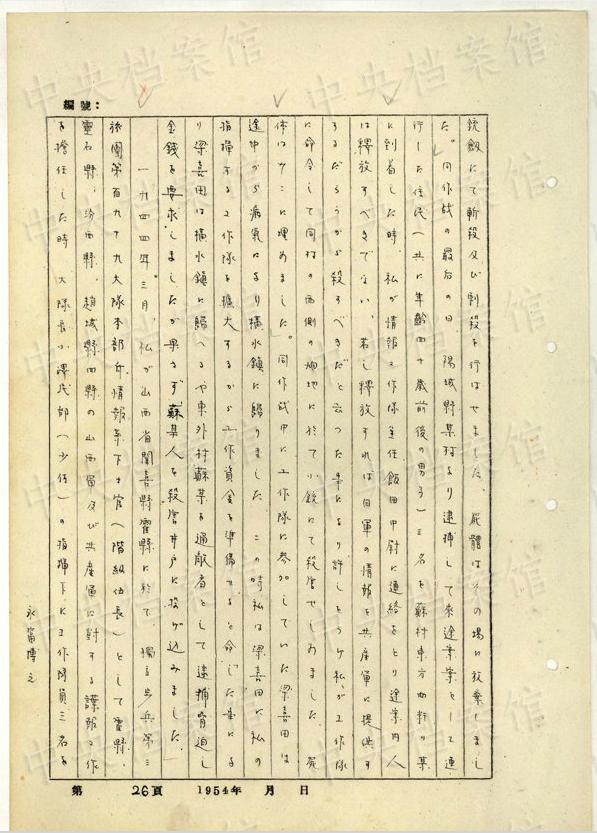 編號：
銃劍にて斬殺及び刺殺を行はせました。屍體はその場に放棄しまし
た。」同作战の最后の日、陽城縣某村より逮捕して來途案内として連
行した住民（共に年齢四十歳前後の男子）三名を蘇村東方約粁の某
に到着した時、私が情報工作隊主任飯田中尉に連絡をとり途案内人
は釋放すべきでない、若し釋放すれば日軍の情報を共産軍に提供す
るだらうから殺すべきだと云つた事により許しをうけ私が工作隊
に命令して同村の西側の畑地に於て小銃にて殺害せしめました。屍
体はそこに埋めました。」同作战中に工作隊に参加していた梁喜田は
途中から病気により横水鎮に歸りました この時私は梁喜田に私の
指揮する工作隊を擴大するから工作資金を準備せよと命じた事によ
り梁喜田は横水鎮に歸へるや東外村蘇某を通敵者として逮捕脅迫し
金錢を要求しましたが果さず蘇某人を殺害井戸に投げ込みました。」
一九四四年三月、私が山西省聞喜縣霍縣に於て 獨立歩兵第三
旅團第百九十九大隊本部附情報係下士官（階級伍長）として霍縣、
靈石縣、汾西縣、趙城縣四縣の山西軍及び共産軍に對する諜報工作
を擔任した時 大隊長小澤氏郎（少佐）の指揮下に工作隊員三名を
永富博之
第 26頁 1954年 月 日
中央档案馆